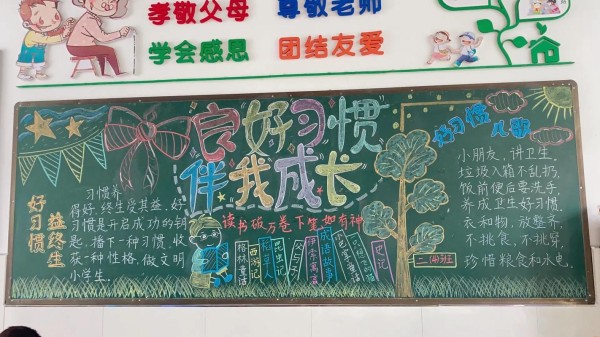 孝敬父母
尊敬老师
学会感恩
团结友爱
良好习惯
伴我成长
读书破万卷下笔如有神
好习惯
益终生
习惯养
得好,终生受其益,好
习惯是开启成功的钥
匙,播下一种习惯,收
获一种性格,做文明
小学生。
格林童话
西游记
稻草人
昆虫记
父与子
伊索寓言
成语故事
史记
好习惯
儿歌
小朋友,讲卫生,
垃圾入箱不乱扔,
饭前便后要洗手,
养成卫生好习惯,
衣和物,放整齐,
不挑食,不挑穿,
珍惜粮食和水电。
二(4)班